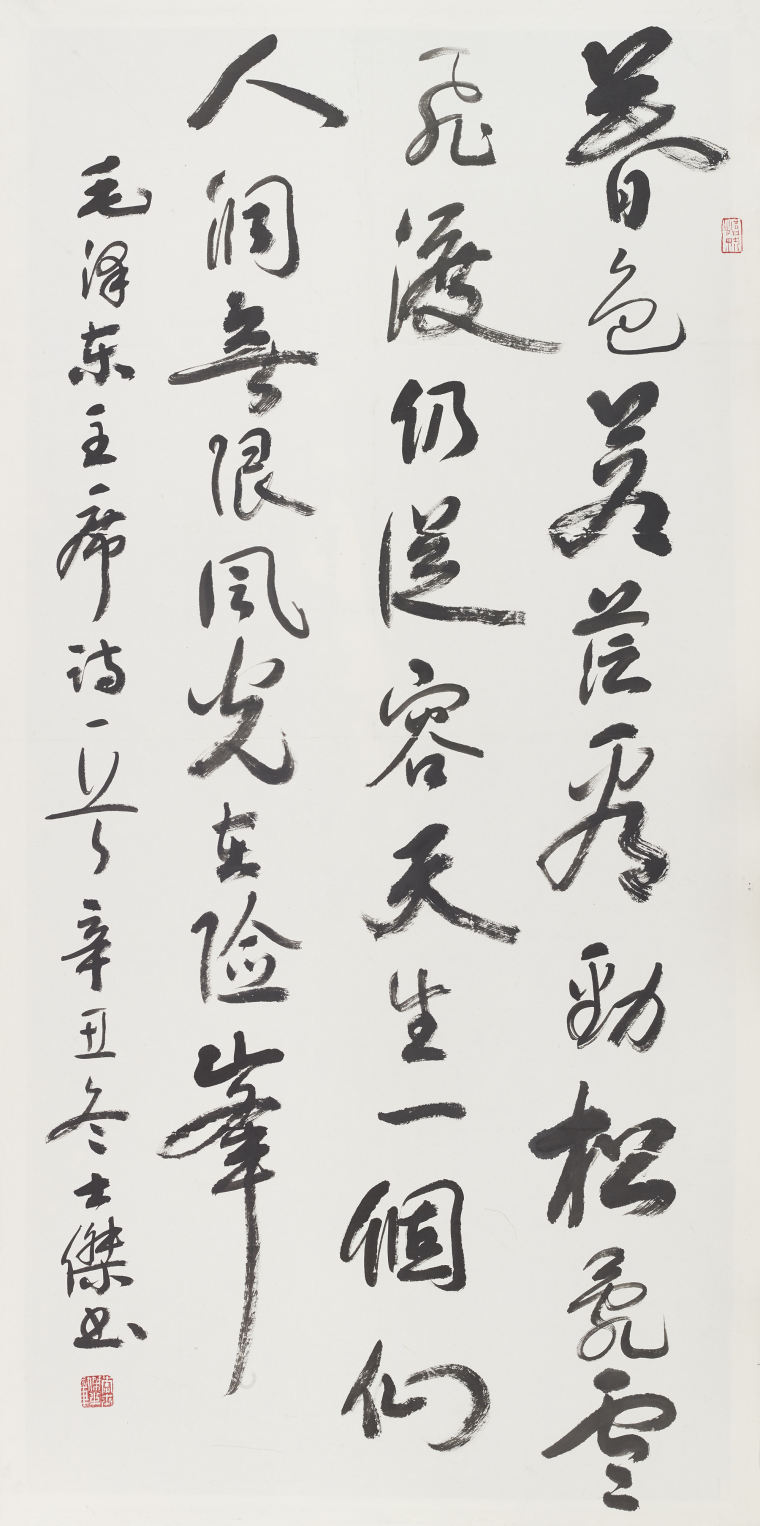 暮色蒼茫看勁松亂雲
飛渡仍從容天生一個仙
人洞無限風光在险峯
毛泽东主席诗一首辛丑冬士傑书